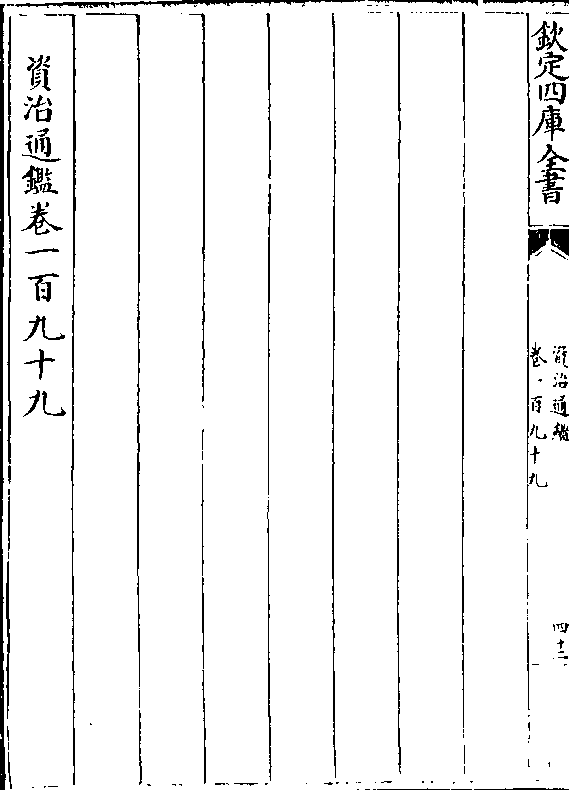 欽定四庫全書
資治通鑑
卷一百九十九
四十二
資治通鑑卷一百九十九